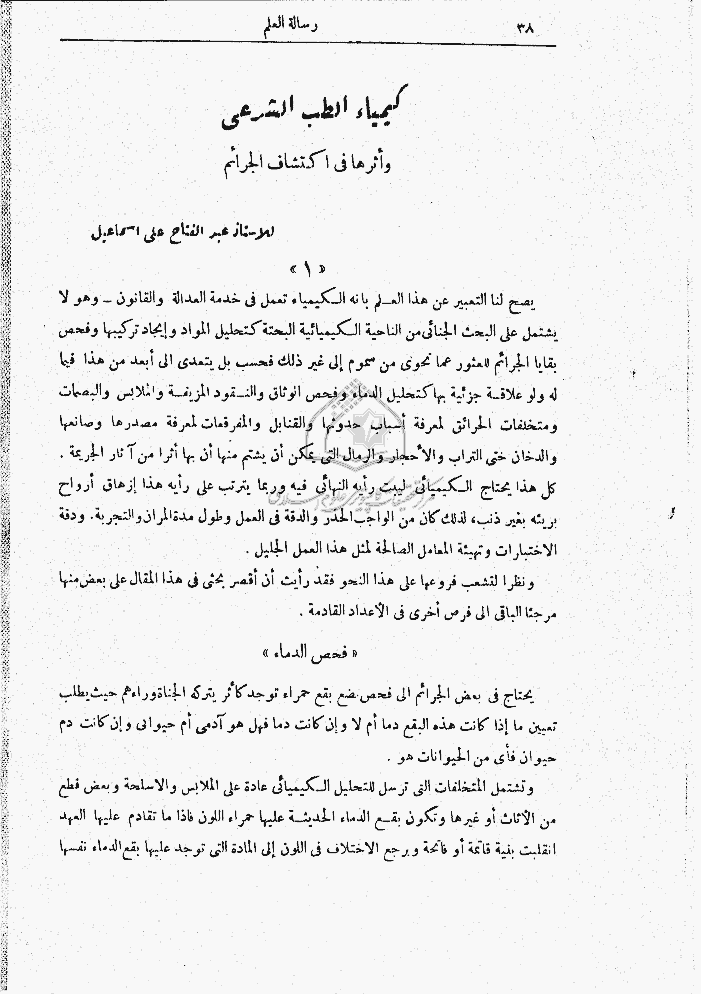 ٣٨
رسالة العلم
كيمياء الطب الشرعى
وأثرها فى اكتشاف الجرائم
للاستاذ عبد الفتاح على اسماعيل
« ١ »
يصح لنا التعبير عن هذا العلم بانه الكيمياء تعمل فى خدمة العدالة والقانون – وهو لا
يشتمل على البحث الجنائى من الناحية الكيميائية البحتة كتحليل المواد وإيجاد تركيبها وفحص
بقايا الجرائم للعثور عما تحوى من سموم إلى غير ذلك فحسب بل يتعدى الى أبعد من هذا فيما
له ولو علاقة جزئية بها كتحليل الدماء وفحص الوثاق والنقود المزيفة والملابس والبصمات
ومتخلفات الحرائق لمعرفة أسباب حدوثها والقنابل والمفرقعات لمعرفة مصدرها وصانعها
والدخان حتى التراب والأحجار والرمال التى يمكن أن يشتم منها أن بها أثرا من آثار الجريمة .
كل هذا يحتاج الكيميائى ليبت رأيه النهائى فيه وربما يترتب على رأيه هذا إزهاق أرواح
بريئه بغير ذنب، لذلك كان من الواجب الحذر والدقة فى العمل وطول مدة المران والتجربة. ودقة
الاختبارات وتهيئة المعامل الصالحة لمثل هذا العمل الجليل .
ونظرا لتشعب فروعها على هذا النحو فقد رأيت أن أقصر بحثى فى هذا المقال على بعض منها
مرجئا الباقى الى فرص أخرى فى الأعداد القادمة .
« فحص الدماء »
يحتاج فى بعض الجرائم الى فحص بضع بقع حمراء توجد كأثر يتركه الجناة وراءهم حيث يطلب
تعيين ما إذا كانت هذه البقع دما أم لا وإن كانت دما فهل هو آدمى أم حيوانى وإن كانت دم
حيوان فأى من الحيوانات هو .
وتشتمل المتخلفات التى ترسل للتحليل الكيميائى عادة على الملابس والاسلحة وبعض قطع
من الأثاث أو غيرها وتكون بقع الدماء الحديثة عليها حمراء اللون فاذا ما تقادم عليها العهد
انقلبت بنية قاتمة أو فاتحة ويرجع الاختلاف فى اللون إلى المادة التى توجد عليها بقع الدماء نفسها